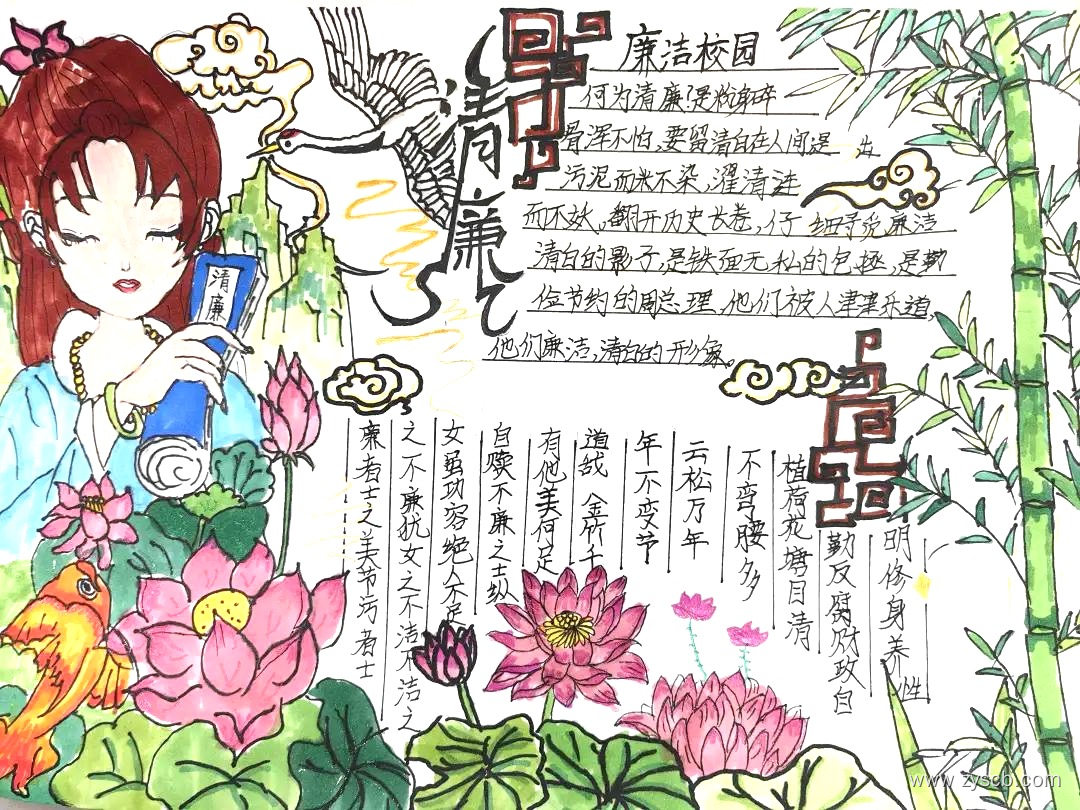 清廉
廉洁校园
何为清廉?是粉身碎
骨浑不怕,要留清白在人间是 出
污泥而不染,濯清涟
而不妖,翻开历史长卷,仔 细寻觅廉洁
清白的影子,是铁面无私的包拯,是勤
俭节约的周总理,他们被人津津乐道,
他们廉洁,清白的形象。
清廉
廉者士之美节污者士
之不廉犹女之不洁不洁之
女虽功容绝人不足
自赎不廉之士纵
有他美何足
道哉 金竹千
年不变节
云松万年
不弯腰多
植荷花塘目清
勤反腐财政自
明修身养性
www.zyscb.com